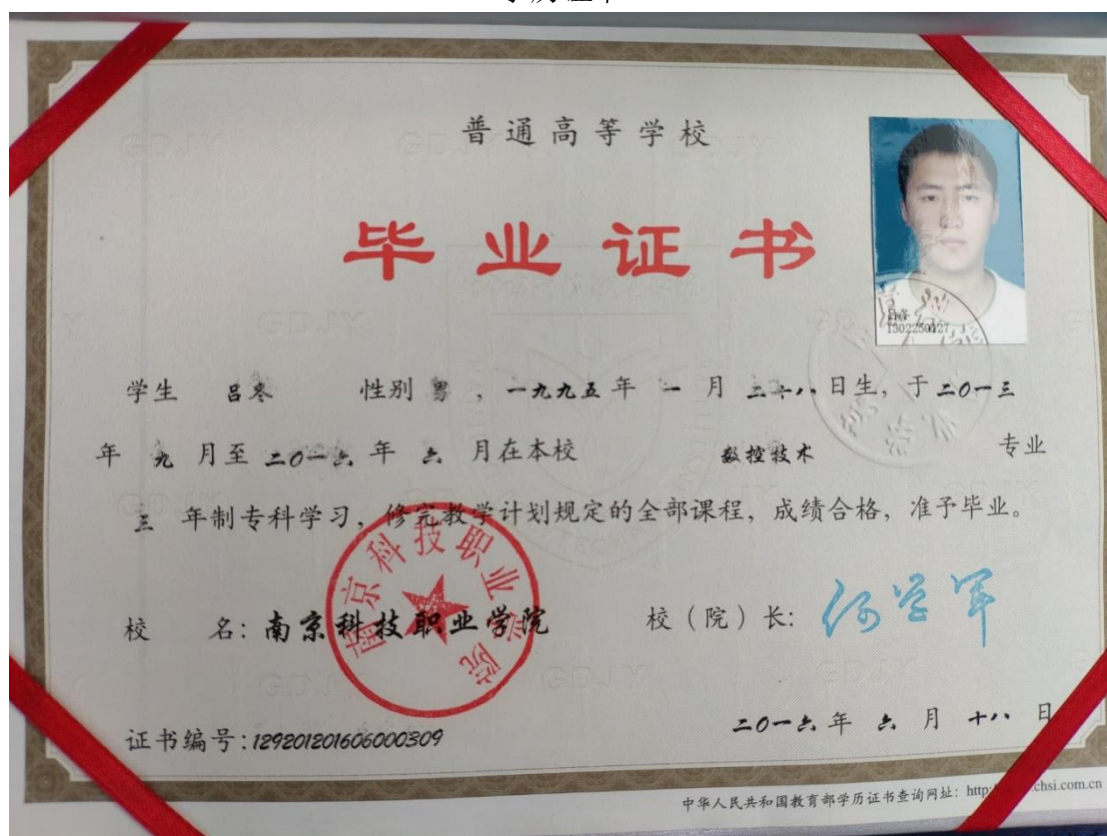 普通高等学校
毕业证书
1302250127
学生 吕冬 性别 男 ,一九九五年 一 月 二十八日生,于二0一三
年 九 月至 二0一六 年 六 月在本校 数控技术 专业
三 年制专科学习,修完教学计划规定的全部课程,成绩合格,准予毕业。
南京科技职业学院
校 名:南京科技职业学院 校(院)长:
证书编号:129201201606000309 二0一六年 六 月 十八 日
中华人民共和国教育部学历证书查询网址:http: chsi.com.cn